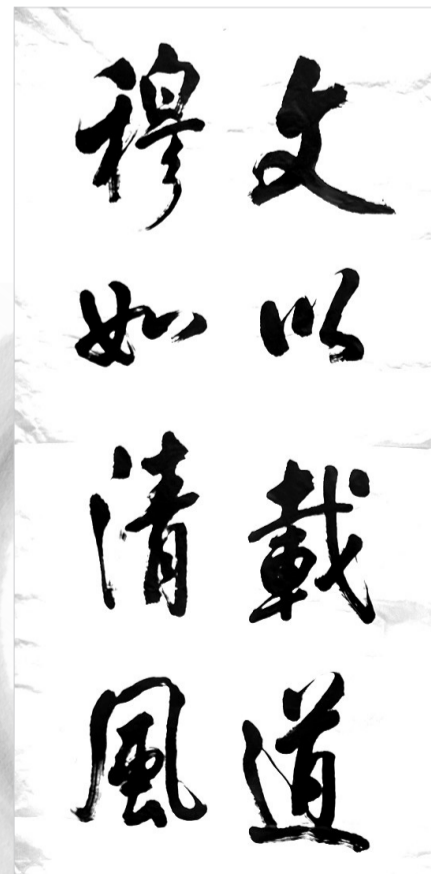 文以載道
穆如清風